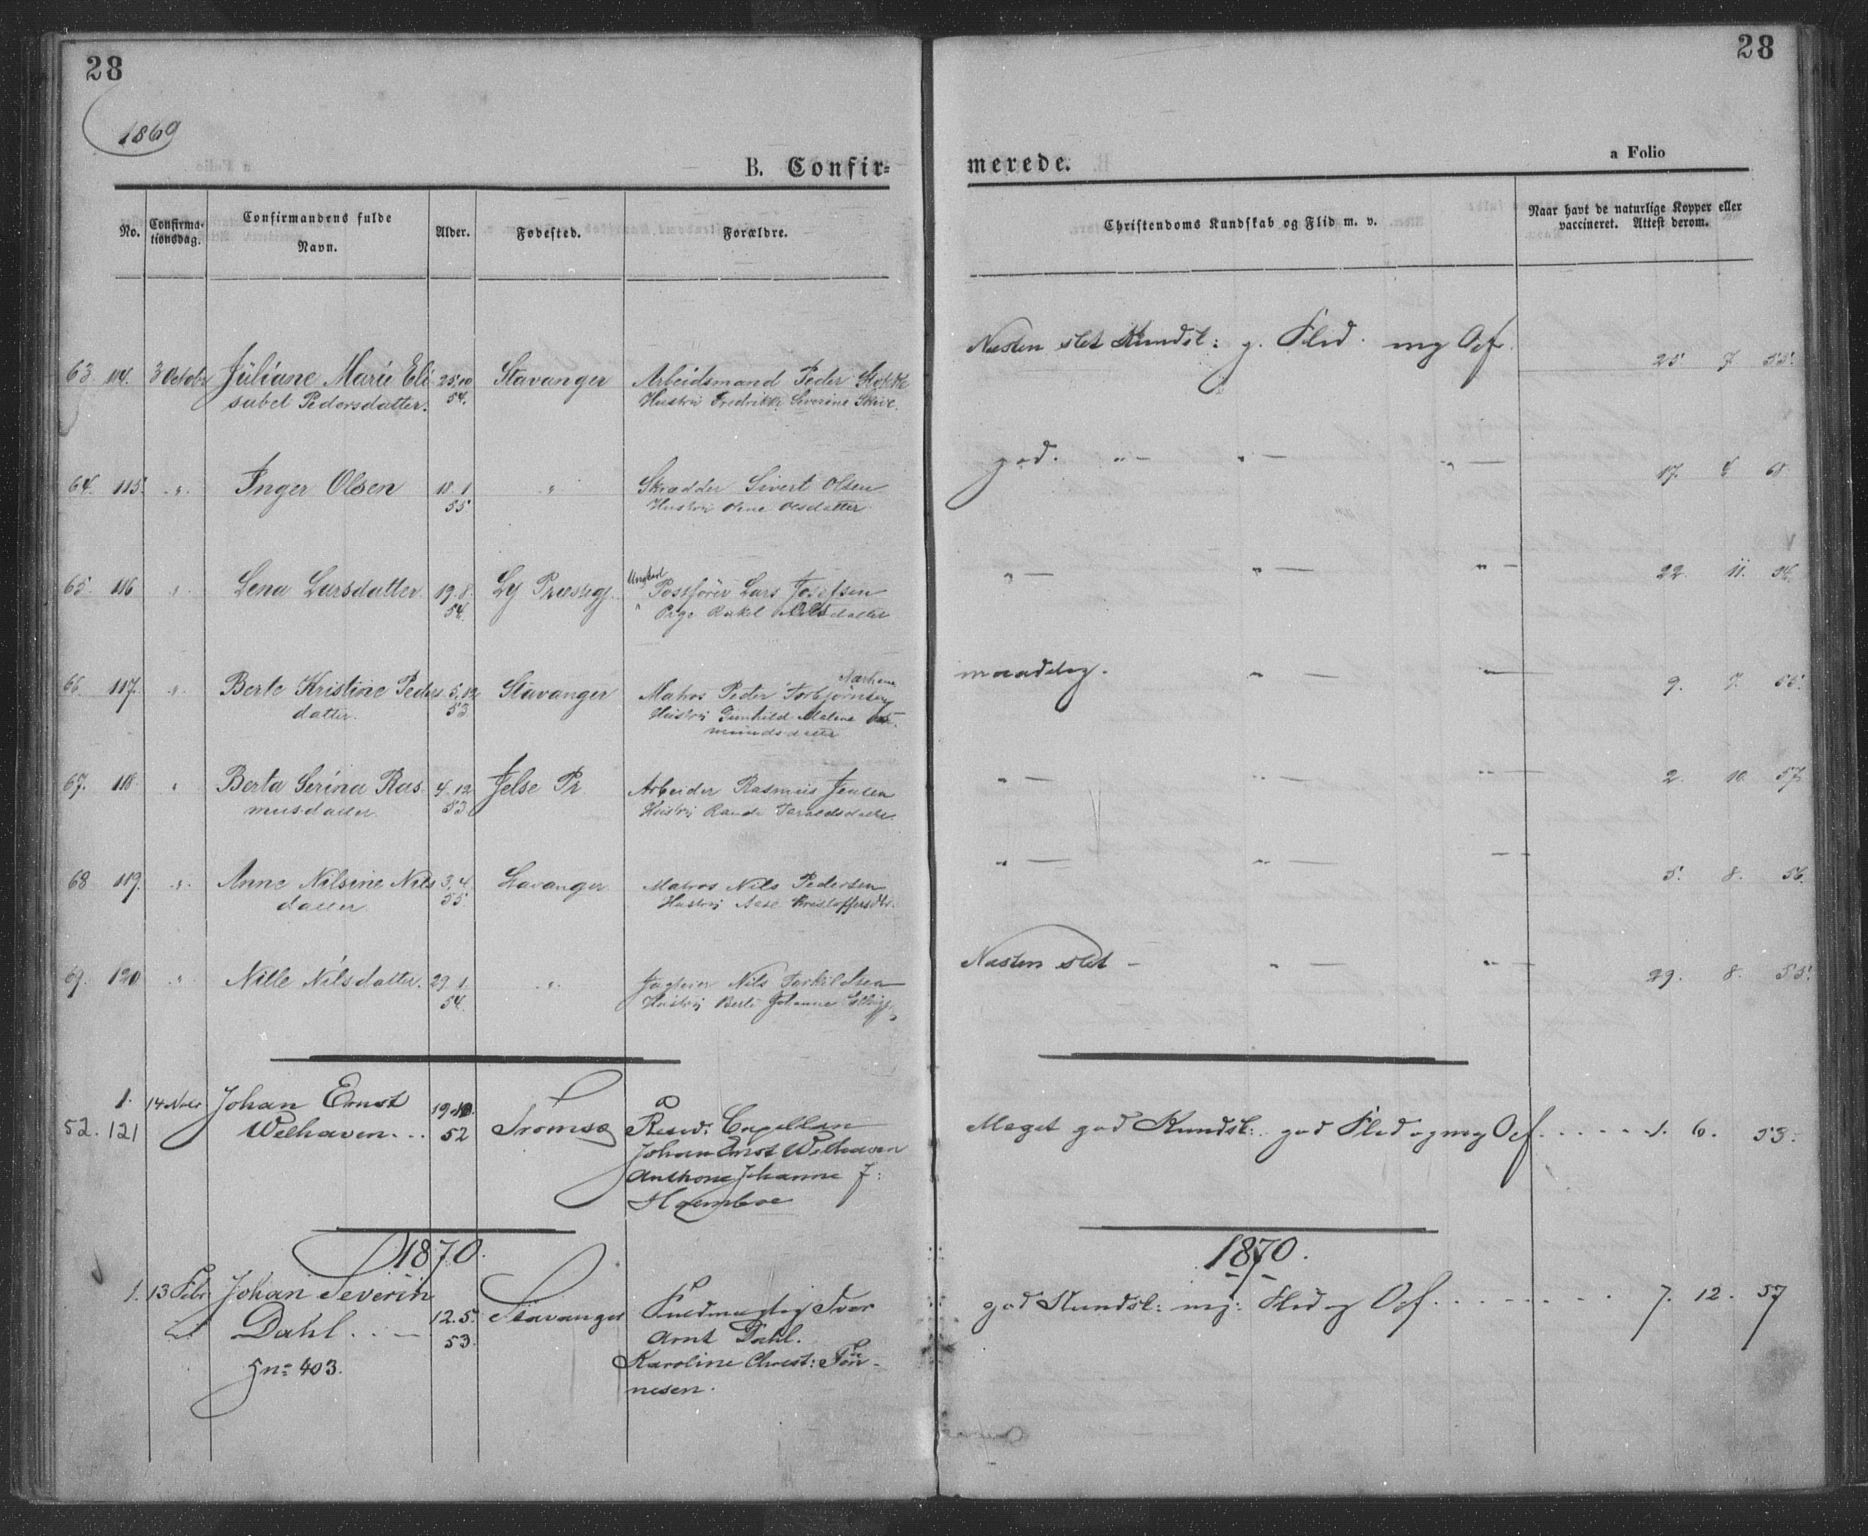 28
28
1869
a Folio
B. Confir-
merede.
No.
Confirma-
tionsdag.
Confirmandens fulde
Navn.
Alder.
Fødested.
Forældre.
Christendoms Kundskab og Flid m. v.
Naar havt de naturlige Kopper eller
vaccineret. Attest derom.
63 114. 3 October Juliane Marie Eli 25.10 Stavanger Arbeidsmand Peder Næsten slet Kundsk: g. Flid. mg Opf. 25. 7. 55.
sabet Pedersdatter. 54. Hustru Fredrikke Severine
64. 115. " Inger Olsen 18. 1 " Skrædder Sivert Olsen god. " — " — " — 17.
55 Hustru Olsdatter
65. 116 " Lena Larsdatter 19. 8. Ly Præstegj. Ungkarl Postfører Lars Josefsen " — " — " — 22. 11. 54.
54. " Pige Rakel Olsdatter
66 117. " Berte Kristine Peders 5.12 Stavanger Matros Peder Torbjørnsen maadelig. " — — 9. 7. 55.
datter. 53 Hustru Gunhild Malene
mundsdatter
67. 118 " Berta Serina Ras 4. 12 Jelse Pr Arbeider Rasmus Jensen " — " — " — 2. 10. 57.
musdatter. 53 Hustru
68 119. " Anne Nilsine Nils 3. 4. Stavanger Matros Nils Pedersen " — " — " — 5. 8. 56.
datter 55. Hustru Aase Kristoffersdtr.
69. 120 " Nille Nilsdatter. 29. 1. " Nils Torkildsen Næsten slet — " — " — 29. 8. 55.
54. Hustru Berte Johanne
1. 14 Nobr Johan Ernst 19.10.
52. 121 Welhaven. . . 52 Tromsø Resid. Capellan Meget god Kundsk: god Flid og mg Opf. . . . . . 1. 6. 53.
Johan Ernst Welhaven
Anthone Johanne J:
Holmboe
1870.
1870.
1. 13 Febr Johan Severin
Dahl. . . — 12. 5. Stavanger Fuldmægtig Iver god Kundsk: mg: Flid og Opf. . . . . . . . 7. 12. 57
53. Arnt Dahl.
gn: 403. Karoline Christ: Tøn-
nesen.